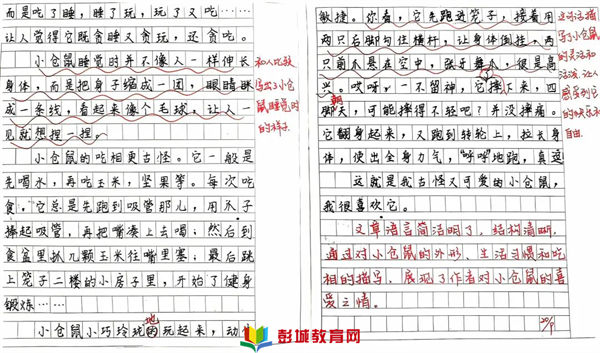 而是吃了睡，睡了玩，玩了又吃……
让人觉得它既贪睡又贪玩，还贪吃。
小仓鼠睡觉时并不像人一样伸长
身体，而是把身子缩成一团，眼睛眯
成一条线，看起来像个毛球，让人一
见就想捏一捏。
和人比较
写出了小仓
鼠睡觉时
的样子
小仓鼠的吃相更古怪。它一般是
先喝水，再吃玉米，坚果等。每次吃
食，它总是先跑到吸管那儿，用爪子
捧起吸管，再把嘴凑上去喝；然后到
食盆里抓几颗玉米往嘴里塞；最后跳
上笼子二楼的小房子里，开始了健身
锻炼……
小仓鼠小巧玲珑的玩起来，动作
地
敏捷。你看，它先跑进笼子，接着用
两只后脚勾住横杆，让身体倒挂，两
只前爪悬在空中，张牙舞爪，很是高
兴。哎呀，一不留神，它摔下来，四
朝
脚天，可能摔得不轻吧？并没摔痛。
它翻身起来，又跑到转轮上，拉长身
体，使出全身力气，“呼呼”地跑，真逗
写了小仓鼠
的灵活和
活泼，让人
感受到它
的快乐和
自由.
这就是我古怪又可爱的小仓鼠，
我很喜欢它。
文章语言简洁明了，结构清晰，
通过对小仓鼠的外形、生活习惯和吃
相的描写，展现了作者对小仓鼠的喜
爱之情。
20/9
彭城教育网